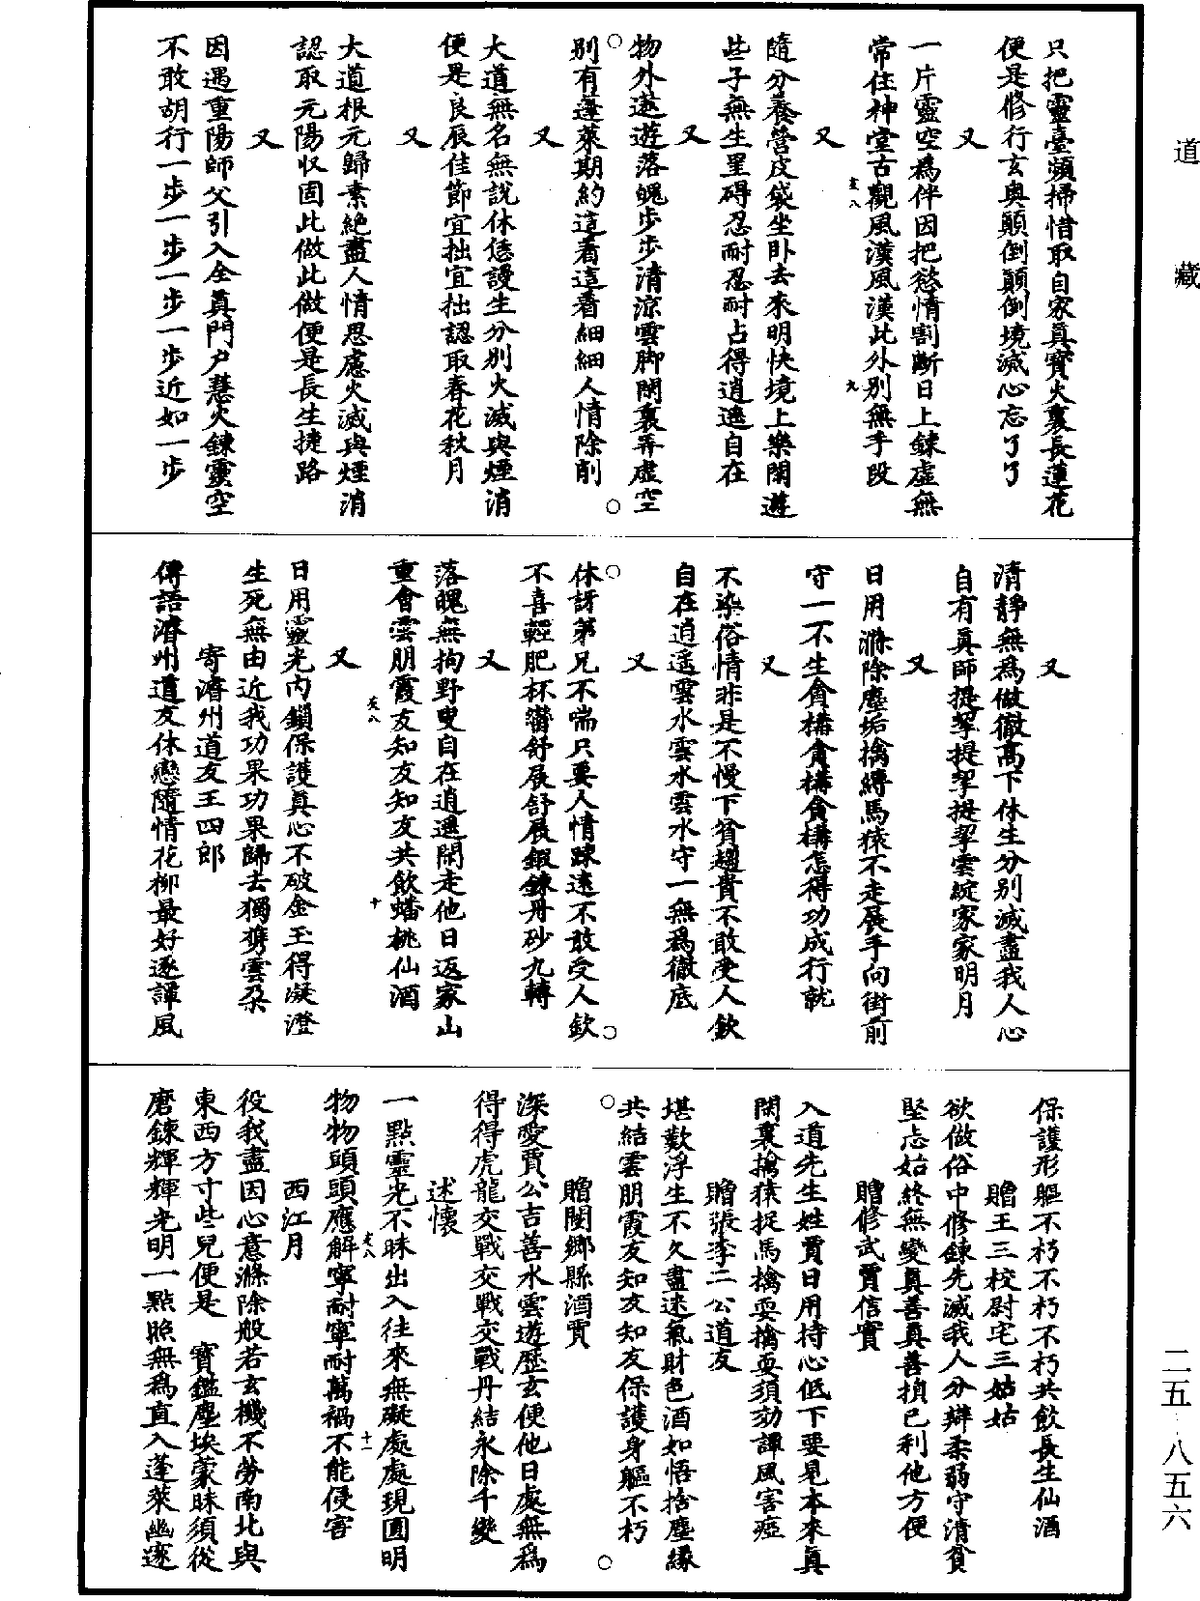 道藏
只把靈臺頻掃惜取自家真寶火裏長蓮花
便是修行玄奥顛倒顛倒境滅心忘了了
又
一片靈空為伴因把慾情割斷日上鍊虛無
常住神堂古觀風漢風漢此外別無手段
又
隨分養營皮袋坐卧去來明快境上樂閑遊
些子無生罣碍忍耐忍耐占得逍遥自在
又
物外遨遊落魄步步清涼雲脚閑裏弄虛空
别有蓬萊期約這着這着細細人情除削
又
大道無名無說休恁謾生分别火滅與煙消
便是良辰佳節宜拙宜拙認取春花秋月
又
大道根元歸素絶盡人情思慮火滅與煙消
認取元陽収固此做此做便是長生捷路
又
因遇重陽師父引入全真門户慧火鍊靈空
不敢胡行一步一步一步一步近如一步
又
清静無為做徹髙下休生分别滅盡我人心
自有真師提挈提挈提挈雲綻家家明月
又
日用滌除塵垢擒縛馬猿不走展手向街前
守一不生貪構貪構貪構怎得功成行就
又
不染俗情非是不慢下貧趨貴不敢受人欽
自在逍遥雲水雲水雲水守一無為徹底
又
休訝第兄不喘只要人情踈遠不敢受人欽
不喜輕肥杯臠舒展舒展鍜鍊丹砂九轉
又
落魄無拘野叟自在逍遥閑走他日返家山
重會雲朋霞友知友知友共飲蟠桃仙酒
又
日用靈光内鎖保護真心不破金玉得凝澄
生死無由近我功果功果歸去獨携雲朶
寄濬州道友王四郎
傳語濬州道友休戀隨情花柳最好逐譚風
保護形軀不朽不朽不朽共飲長生仙酒
贈王三校尉宅三姑姑
欲做俗中修鍊先滅我人分辯柔弱守清貧
堅志始終無變真善真善損己利他方便
贈修武賈信實
入道先生姓賈日用持心低下要見本來真
閑裏擒猿捉馬擒耍擒耍須効譚風害瘂
贈張李二公道友
堪歎浮生不久盡迷氣財色酒如悟捨塵緣
共結雲朋霞友知友知友保護身軀不朽
贈閿鄉縣酒賈
深愛賈公吉善水雲遊歷玄便他日處無為
得得虎龍交戰交戰交戰丹結永除千變
述懷
一點靈光不昧出入往來無礙處處現圓明
物物頭頭應解寧耐寧耐萬禍不能侵害
西江月
役我盡因心意滌除般若玄機不勞南北與
東西方寸些兒便是 寶鑑塵埃蒙昧須從
磨鍊輝輝光明一點照無為直入蓬萊幽邃
二五·八五六